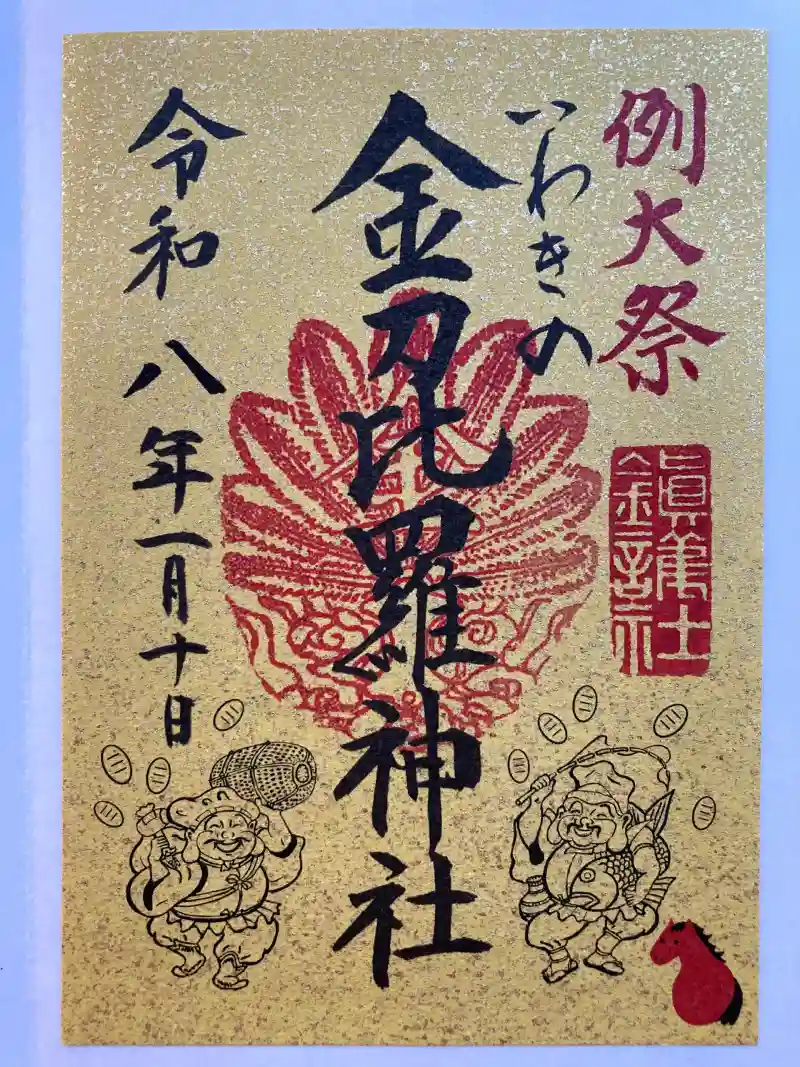 例大祭
鎮護社
いわきの
金刀比羅神社
令和八年一月十日